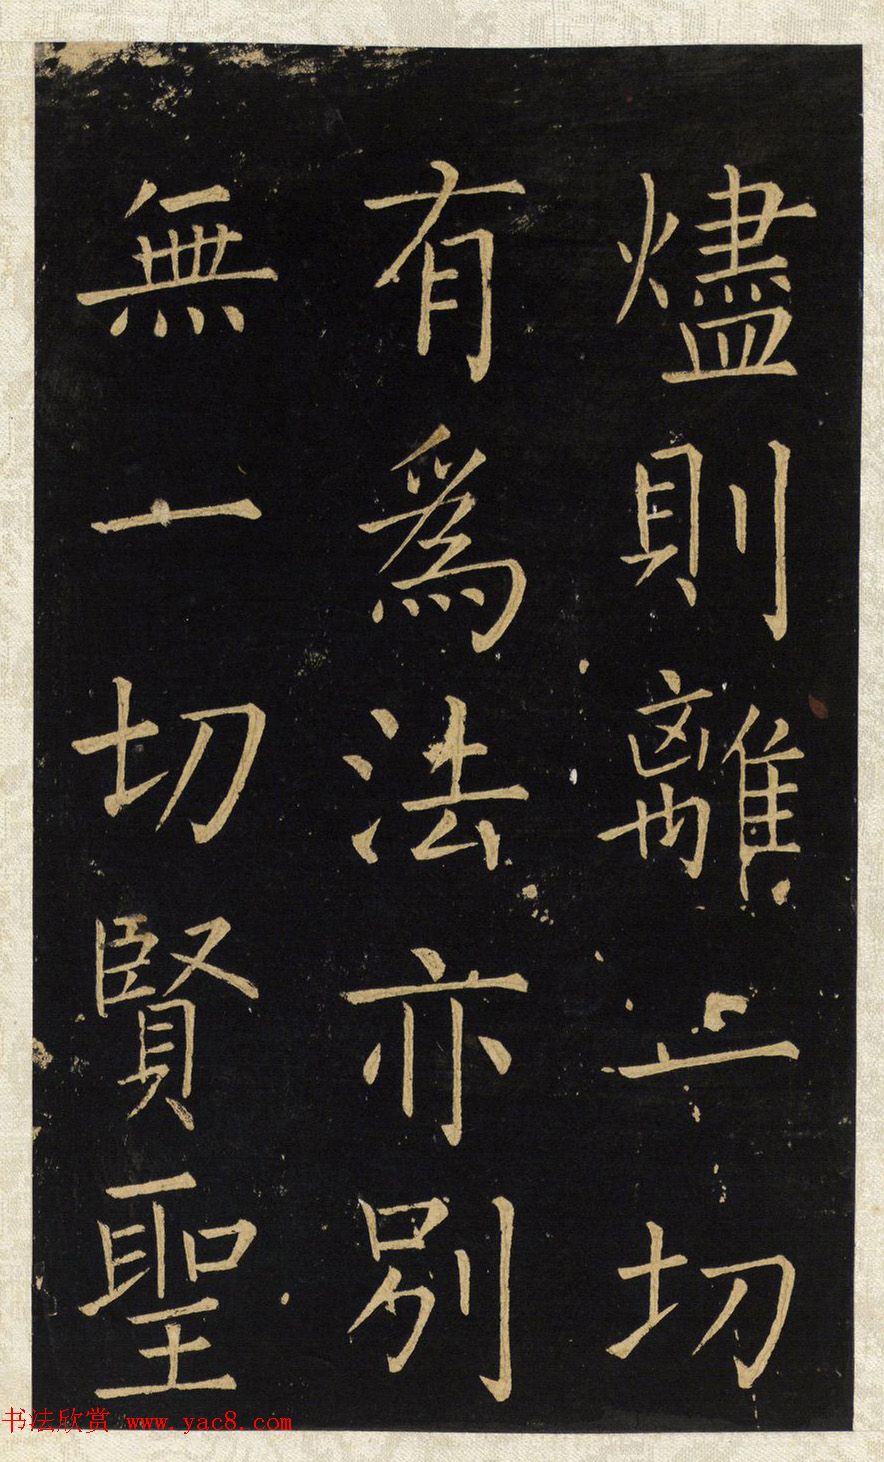 燼則離一切
有為法亦別
無一切賢聖
书法欣赏 www.yac8.com